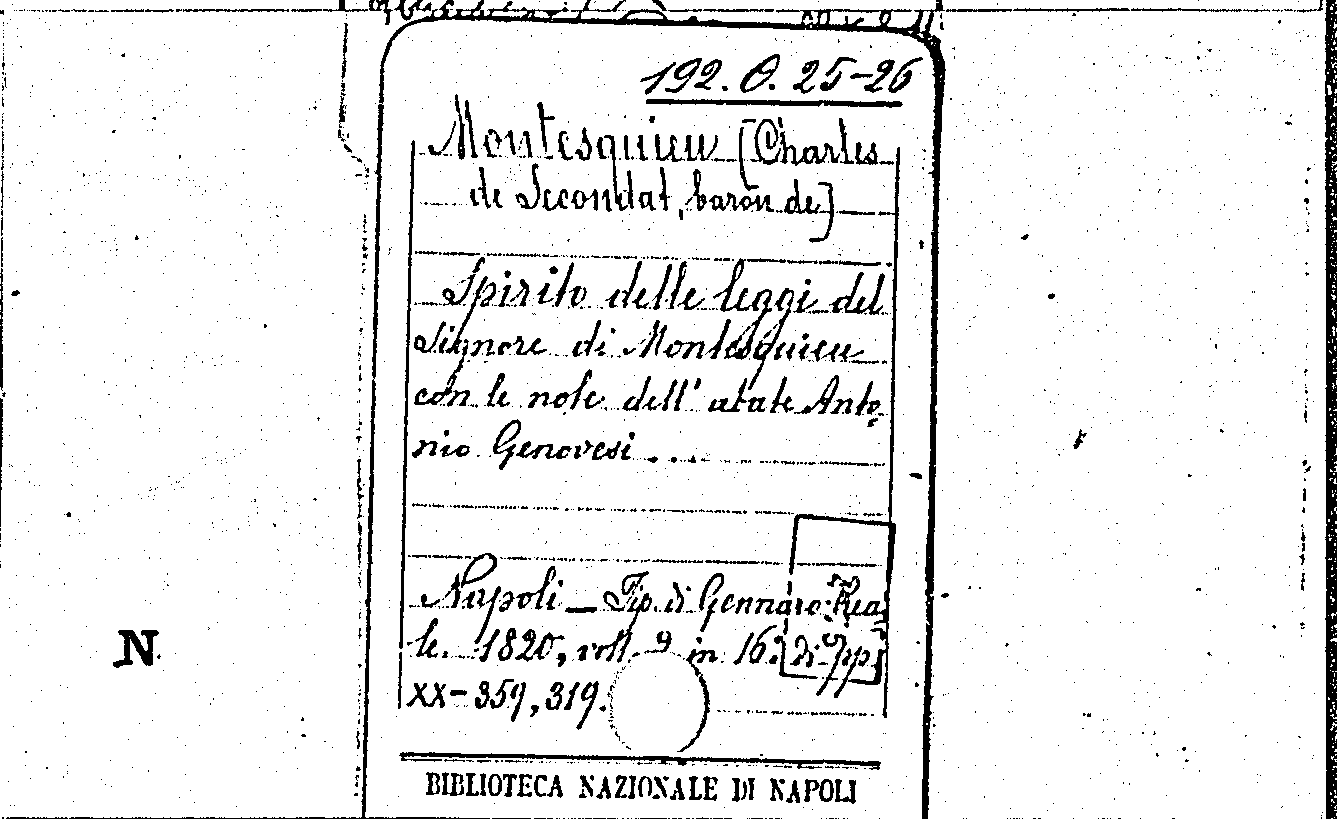 192. O. 25-26
Montesquieu [Charles
de Secondat, baron de]
Spirito delle leggi del
Signore di Montesquieu
con le note dell' abate Anto-
nio Genovesi ...
Napoli – Tip. di Gennaro Rea-
le. 1820, voll. 2 in 16.° di pp.
XX-359, 319.
N
BIBLIOTECA NAZIONALE DI NAPOLI